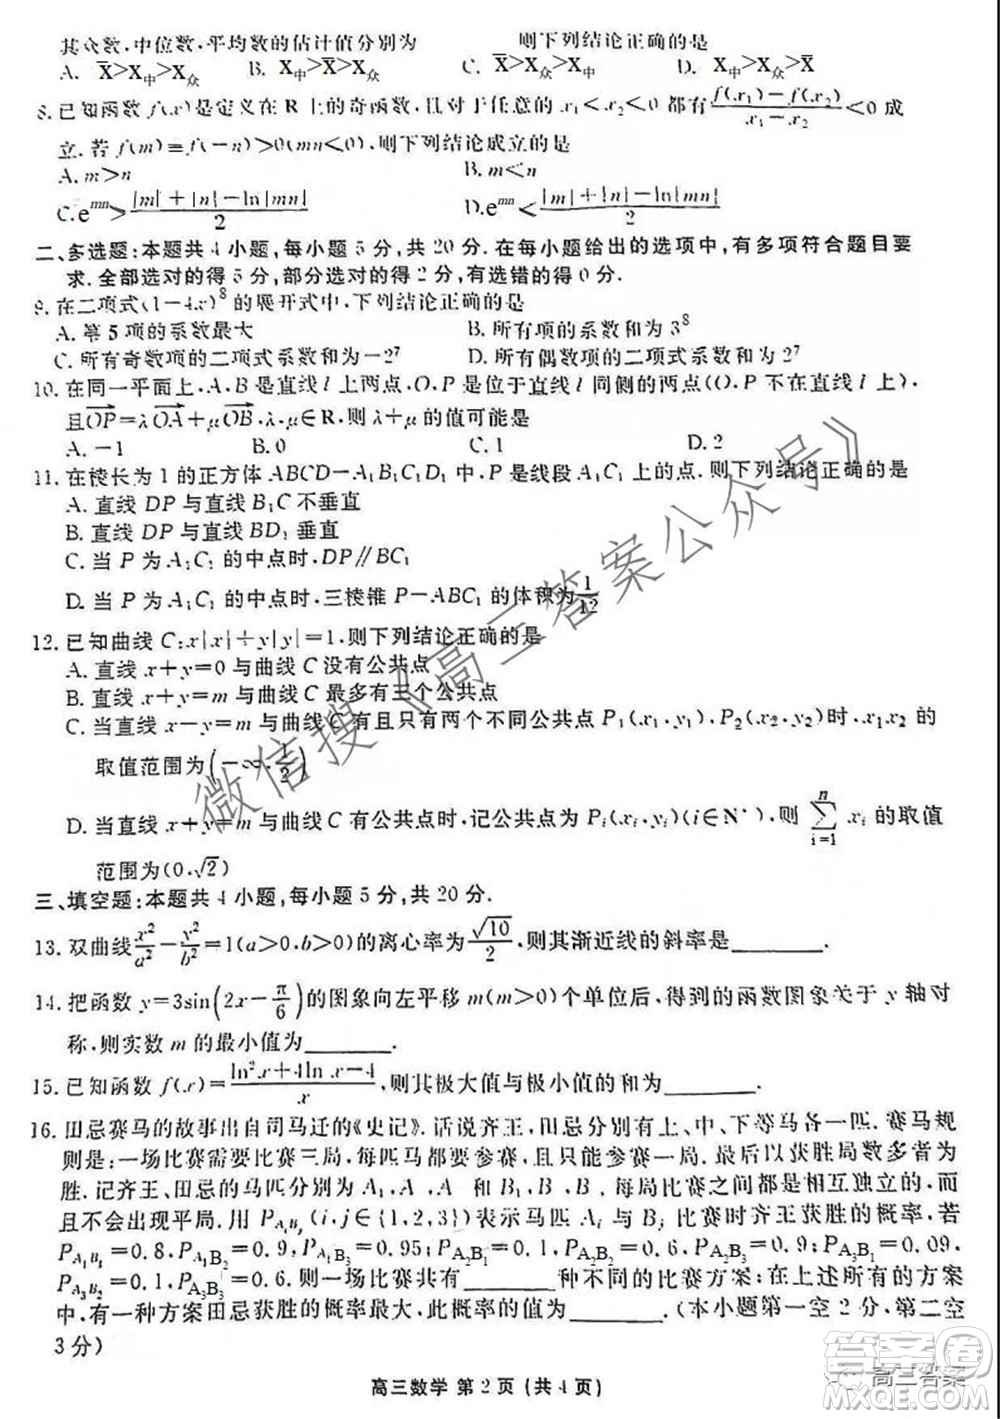 其众数,中位数,平均数的估计值分别为 则下列结论正确的是
A. X̄>X中>X众 B. X中>X̄>X众 C. X̄>X众>X中 D. X中>X众>X̄
8.已知函数 f(x)是定义在 R 上的奇函数,且对于任意的 x₁<x₂<0 都有 (f(x₁)−f(x₂))/(x₁−x₂)<0 成
立.若 f(m)=f(−n)>0(mn<0),则下列结论成立的是
A. m>n B. m<n
C. eᵐⁿ>(|m|+|n|−ln|mn|)/2 D. eᵐⁿ<(|m|+|n|−ln|mn|)/2
二、多选题:本题共 4 小题,每小题 5 分,共 20 分. 在每小题给出的选项中,有多项符合题目要
求. 全部选对的得 5 分,部分选对的得 2 分,有选错的得 0 分.
9.在二项式(1−4x)⁸ 的展开式中,下列结论正确的是
A. 第 5 项的系数最大 B. 所有项的系数和为 3⁸
C. 所有奇数项的二项式系数和为−2⁷ D. 所有偶数项的二项式系数和为 2⁷
10. 在同一平面上,A,B 是直线 l 上两点,O,P 是位于直线 l 同侧的两点(O,P 不在直线 l 上),
且OP=λOA+μOB,λ,μ∈R,则 λ+μ 的值可能是
A. −1 B. 0 C. 1 D. 2
11. 在棱长为 1 的正方体 ABCD−A₁B₁C₁D₁ 中,P 是线段 A₁C₁ 上的点. 则下列结论正确的是
A. 直线 DP 与直线 B₁C 不垂直
B. 直线 DP 与直线 BD₁ 垂直
C. 当 P 为 A₁C₁ 的中点时,DP∥BC₁
D. 当 P 为 A₁C₁ 的中点时,三棱锥 P−ABC₁ 的体积为1/12
12. 已知曲线 C:x|x|+y|y|=1,则下列结论正确的是
A. 直线 x+y=0 与曲线 C 没有公共点
B. 直线 x+y=m 与曲线 C 最多有三个公共点
C. 当直线 x−y=m 与曲线 C 有且只有两个不同公共点 P₁(x₁,y₁),P₂(x₂,y₂)时,x₁x₂ 的
取值范围为(−∞,1/2)
D. 当直线 x+y=m 与曲线 C 有公共点时,记公共点为 Pᵢ(xᵢ,yᵢ)(i∈N*),则 n∑i=1 xᵢ 的取值
范围为(0,√2)
三、填空题:本题共 4 小题,每小题 5 分,共 20 分.
13. 双曲线x²/a²−y²/b²=1(a>0,b>0)的离心率为√10/2,则其渐近线的斜率是________.
14. 把函数 y=3sin(2x−π/6)的图象向左平移 m(m>0)个单位后,得到的函数图象关于 y 轴对
称,则实数 m 的最小值为________.
15. 已知函数 f(x)=(ln²x+4ln x−4)/x,则其极大值与极小值的和为________.
16. 田忌赛马的故事出自司马迁的《史记》. 话说齐王,田忌分别有上、中、下等马各一匹. 赛马规
则是:一场比赛需要比赛三局,每匹马都要参赛,且只能参赛一局. 最后以获胜局数多者为
胜. 记齐王、田忌的马匹分别为 A₁,A ,A 和 B₁,B ,B ,每局比赛之间都是相互独立的. 而
且不会出现平局. 用 PAᵢBⱼ(i,j∈{1,2,3})表示马匹 Aᵢ 与 Bⱼ 比赛时齐王获胜的概率,若
PA₁B₁=0.8,PA₁B₂=0.9,PA₁B₃=0.95;PA₂B₁=0.1,PA₂B₂=0.6,PA₂B₃=0.9;PA₃B₁=0.09,
PA₃B₂=0.1,PA₃B₃=0.6. 则一场比赛共有________种不同的比赛方案;在上述所有的方案
中,有一种方案田忌获胜的概率最大,此概率的值为________. (本小题第一空 2 分,第二空
3 分)
微信搜《高三答案公众号》
高三数学 第 2 页 (共 4 页)
答案卷
高三答案